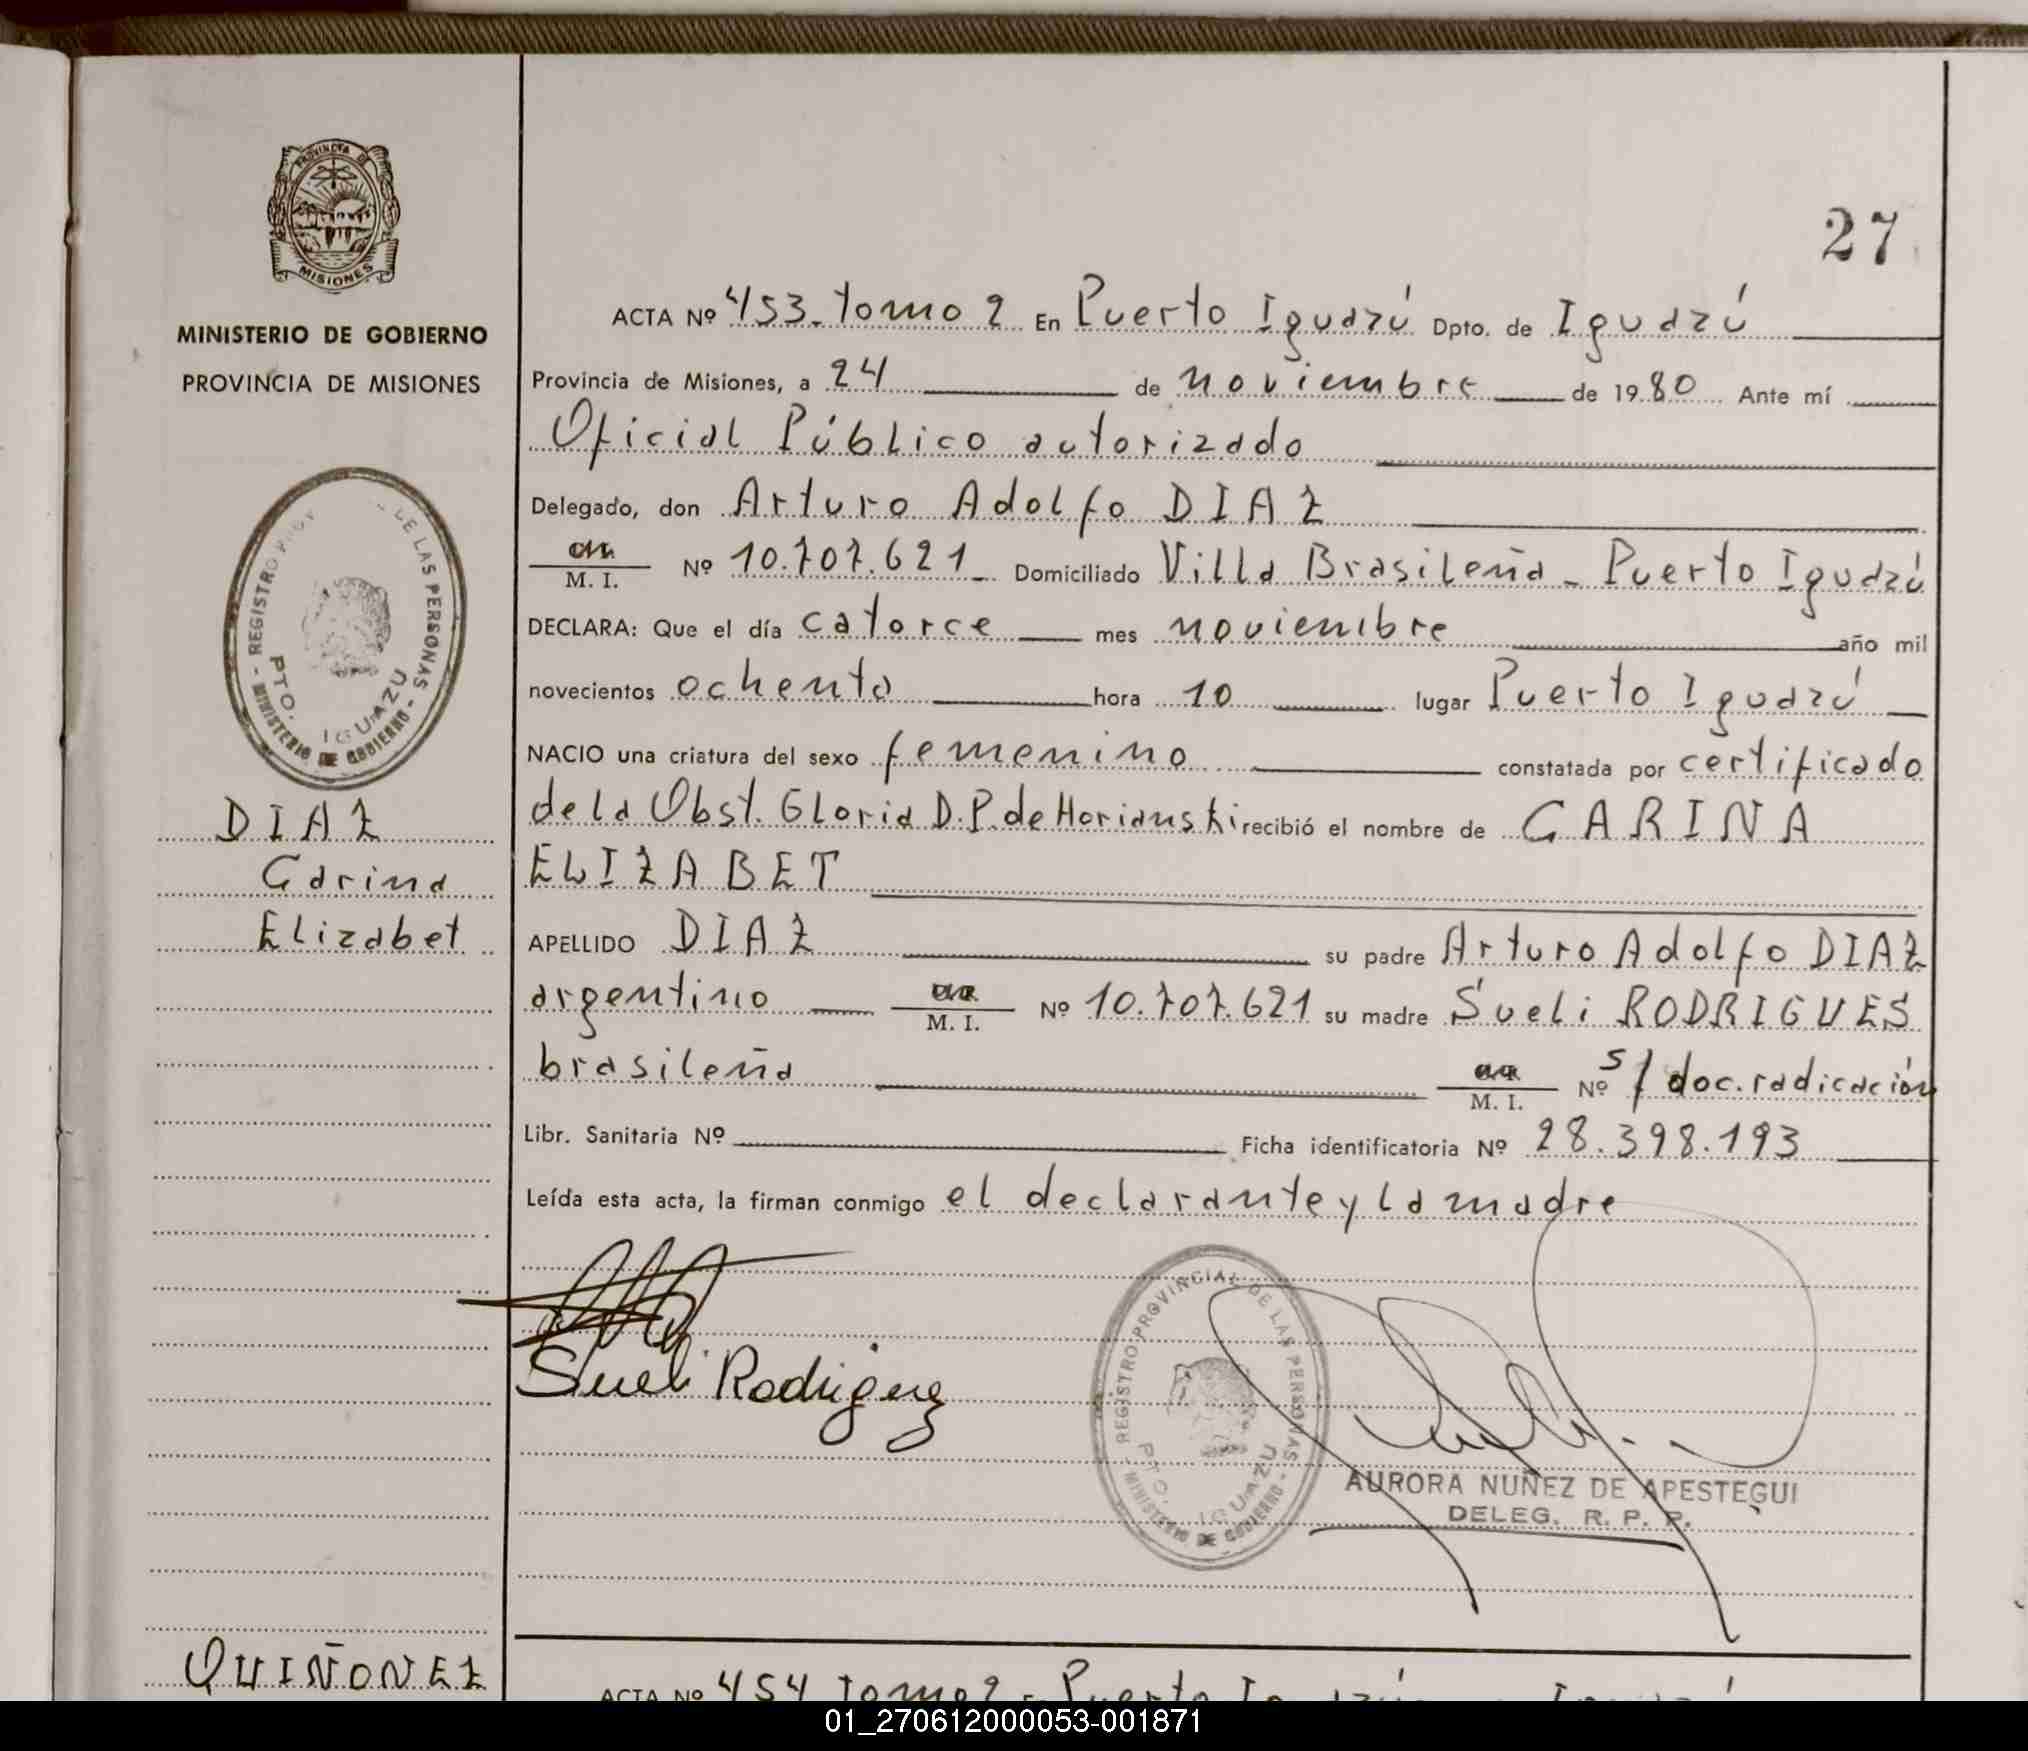 27
PROVINCIA DE
MISIONES
MINISTERIO DE GOBIERNO
PROVINCIA DE MISIONES
DE LAS PERSONAS
- REGISTRO
PTO. IGUAZU
- MINISTERIO DE GOBIERNO -
DIAZ
Carina
Elizabet
ACTA Nº 453 - tomo 2 En Puerto Iguazú Dpto. de Iguazú
Provincia de Misiones, a 24 de noviembre de 1980 Ante mí
Oficial Público autorizado
Delegado, don Arturo Adolfo DIAZ
M. I. Nº 10.707.621 - Domiciliado Villa Brasileña - Puerto Iguazú
DECLARA: Que el día catorce mes noviembre año mil
novecientos ochenta hora 10 lugar Puerto Iguazú
NACIO una criatura del sexo femenino constatada por certificado
de la Obst. Gloria D.P. de Horianski recibió el nombre de CARINA
ELIZABET
APELLIDO DIAZ su padre Arturo Adolfo DIAZ
argentino M. I. Nº 10.707.621 su madre Sueli RODRIGUES
brasileña M. I. Nº s/ doc. radicación
Libr. Sanitaria Nº Ficha identificatoria Nº 28.398.193
Leída esta acta, la firman conmigo el declarante y la madre
Sueli Rodrigues
REGISTRO PROVINCIAL DE LAS PERSONAS
PTO. IGUAZU
- MINISTERIO DE GOBIERNO -
AURORA NUÑEZ DE APESTEGUI
DELEG. R. P. P.
QUIÑONEZ
ACTA Nº 454 tomo 2 - Puerto Iguazú
01_270612000053-001871